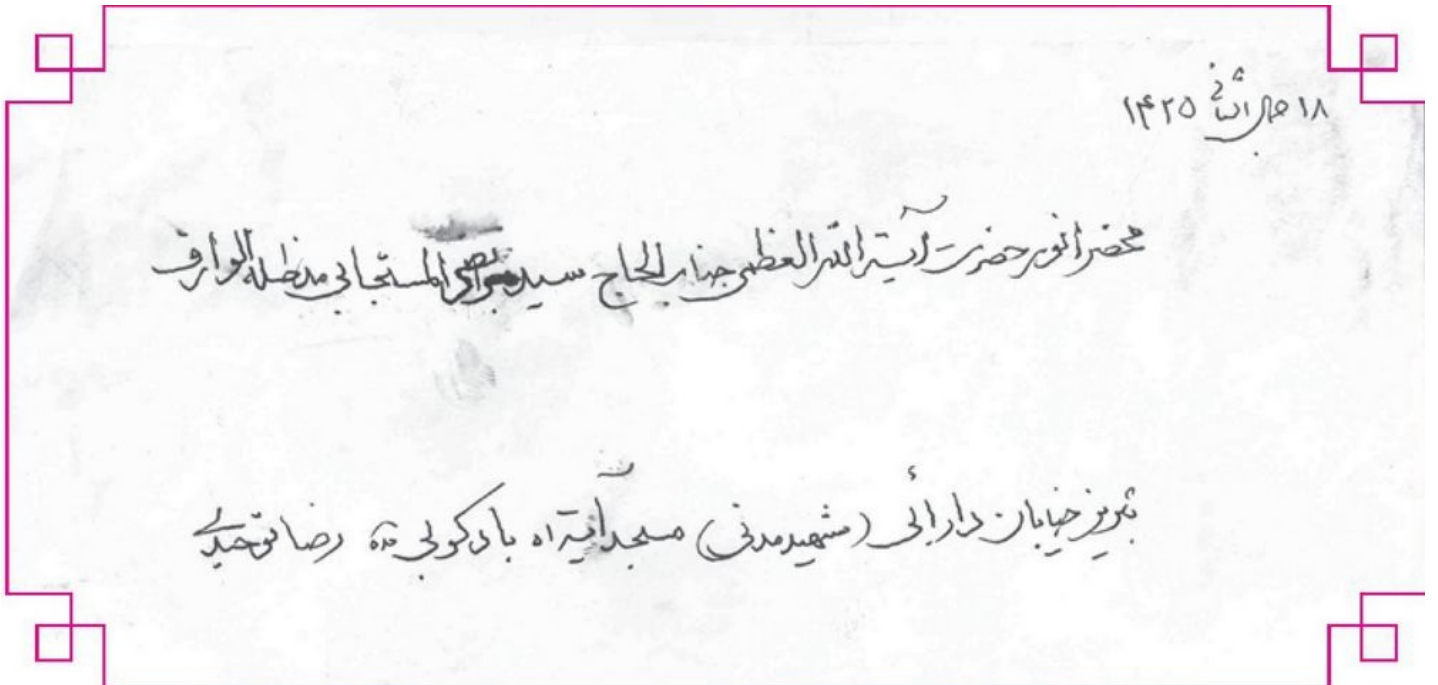 ۱۸ جمادی الثانی ۱۴۲۵
محضر انور حضرت آیة الله العظمی جناب الحاج سید المستجابی مد ظله الوارف
تبریز خیابان دارائی (شهید مدنی) مسجد آیة اله بادکوبی قده رضا توحیدی